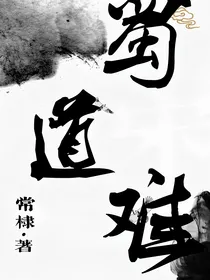 蜀
道
难
常棣·著